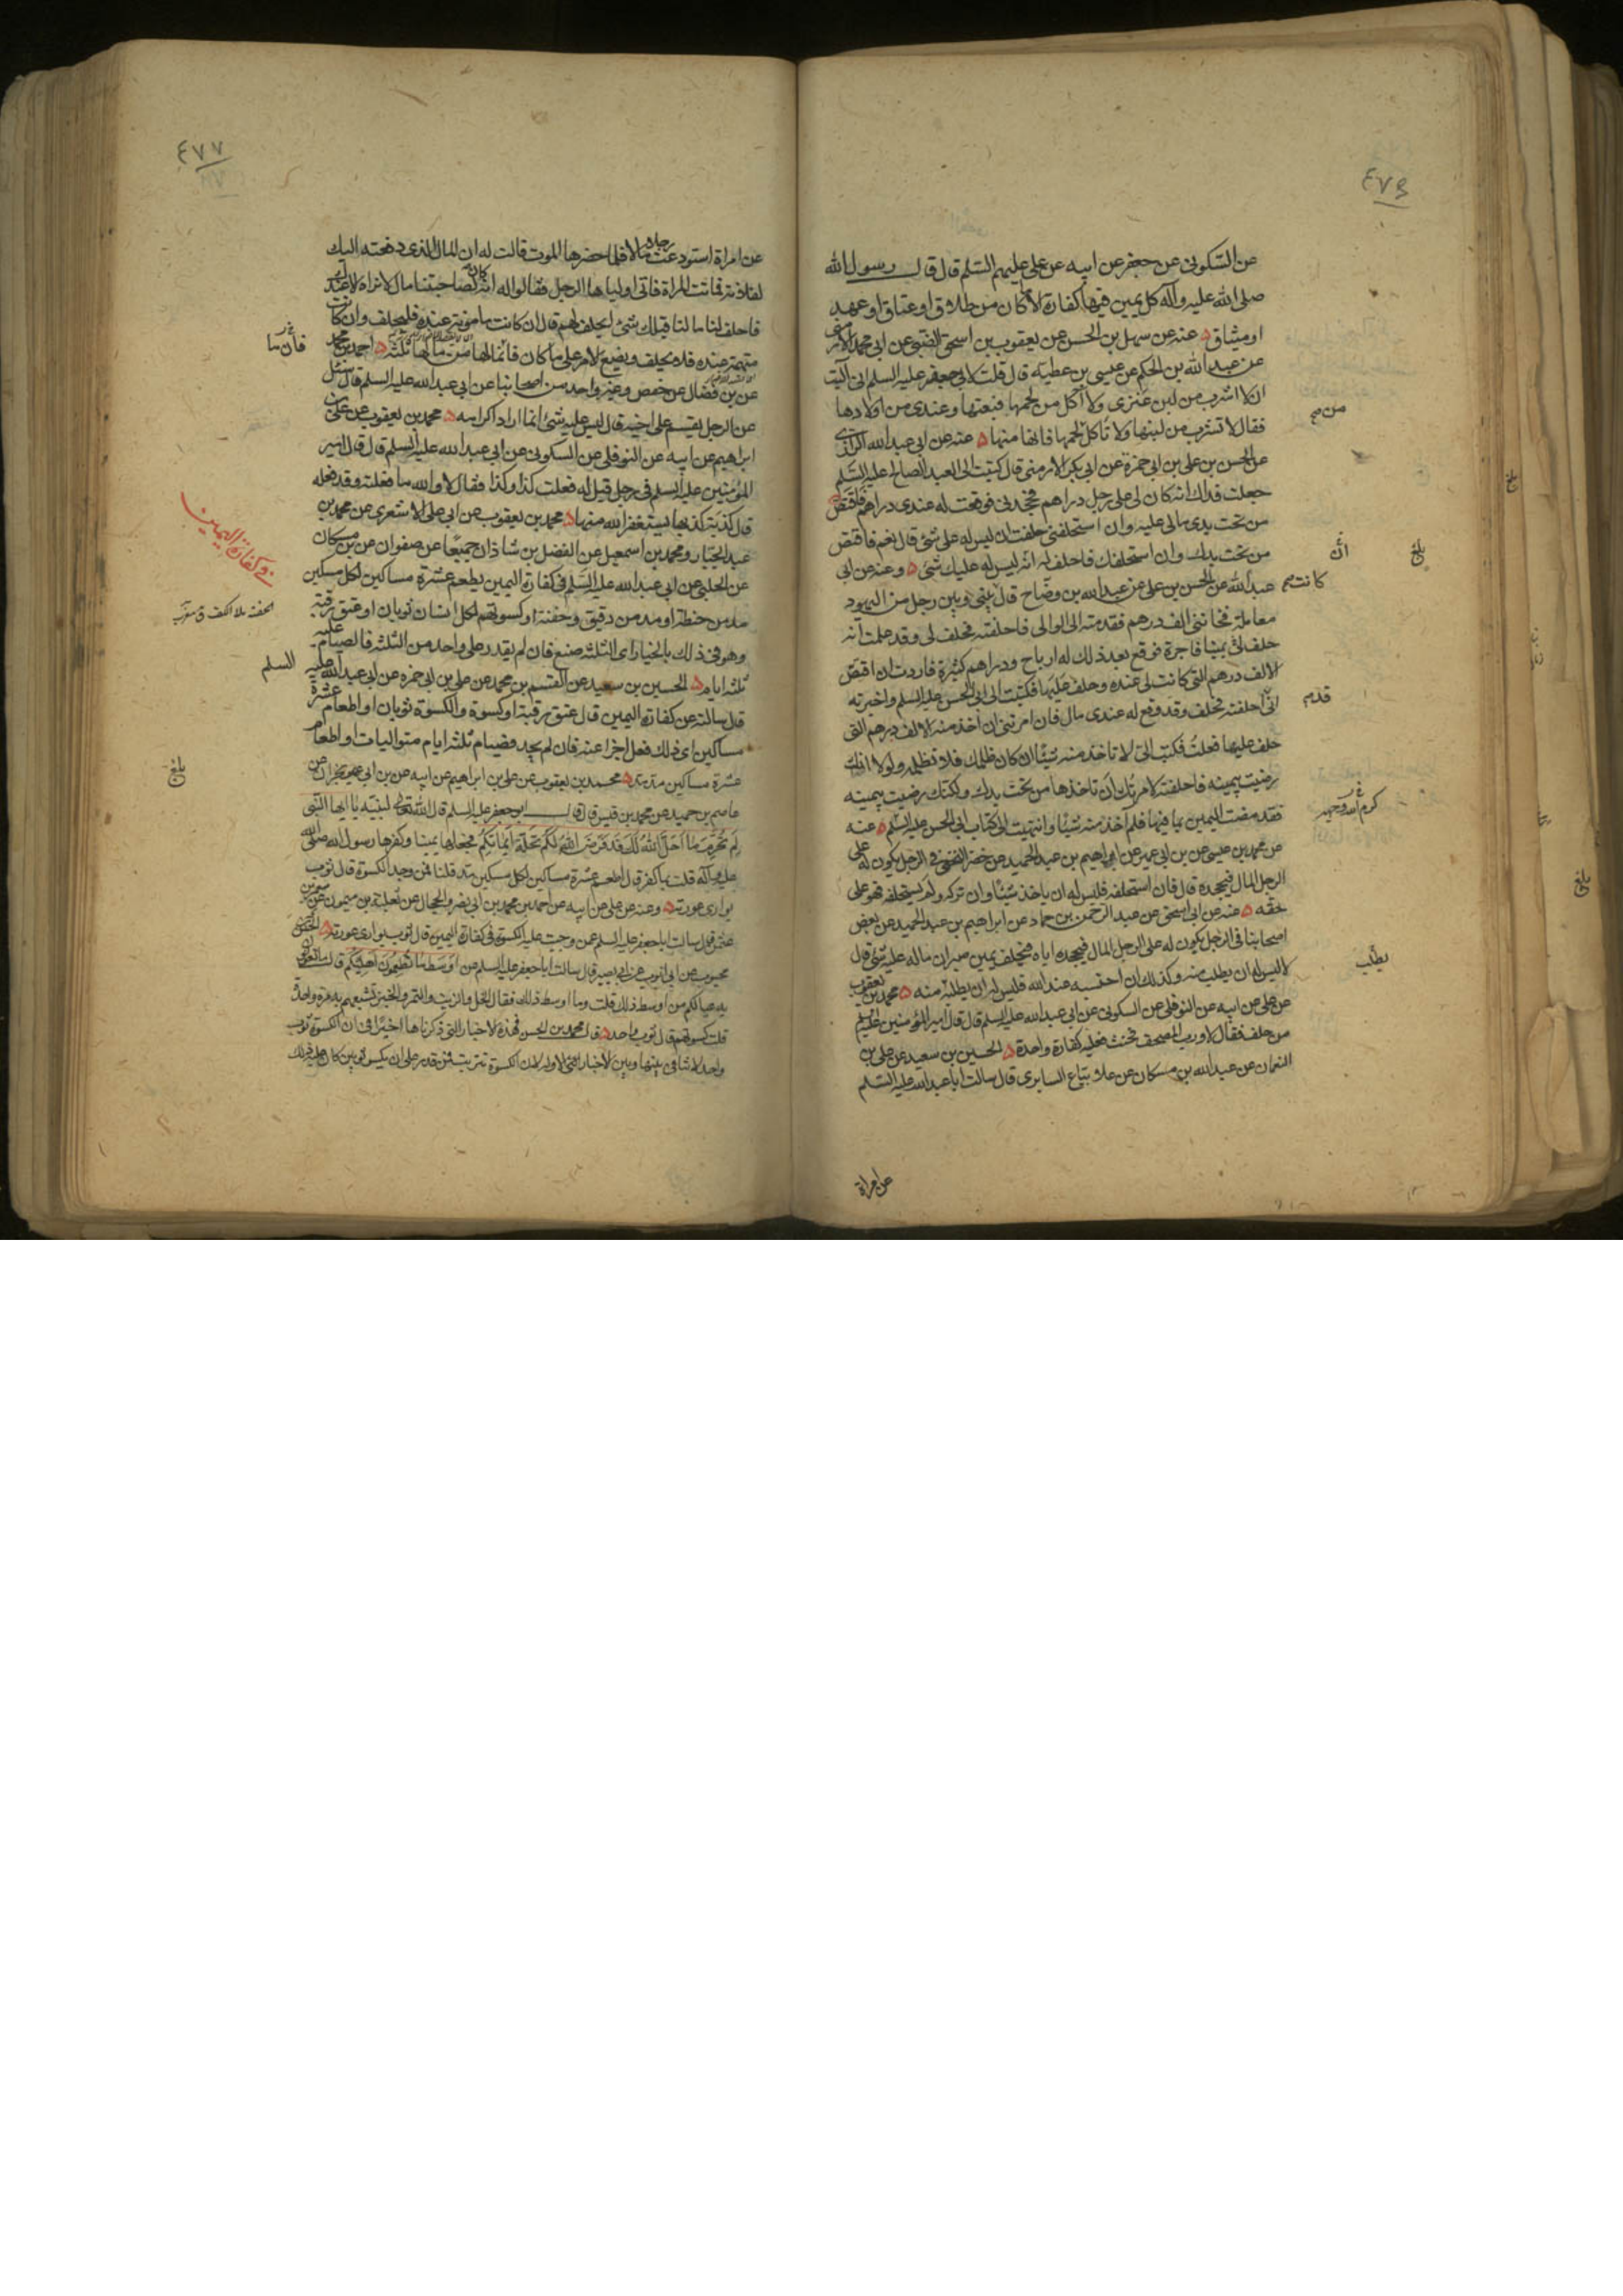 ٤٧٦
عن السكونى عن جعفر عن ابيه عن على عليهم السلم قال قال رسول الله
صلى الله عليه وآله كل يمين فيها كفارة الا ما كان من طلاق او عتاق او عهد
او ميثاق عنه عن سهل بن الحسن عن يعقوب بن اسحق الضبى عن ابى محمد الارمنى
عن عبد الله بن الحكم عن عيسى بن عطية قال قلت لابى جعفر عليه السلم انى آليت
ان لا اشرب من لبن عنزى ولا آكل من لحمها فبعتها وعندى من اولادها
فقال لا تشرب من لبنها ولا تأكل لحمها فانها منها عنه عن ابى عبد الله الرازى
عن الحسن بن على بن ابى حمزة عن ابى بكر الارمنى قال كتبت الى العبد الصالح عليه السلم
جعلت فداك انه كان لى على رجل دراهم فجحدنى فوقعت له عندى دراهم فاقتص
من تحت يدى مالى عليه وان استحلفنى حلفت ان ليس له على شئ قال نعم فاقتص
من تحت يدك وان استحلفك فاحلف له انه ليس له عليك شئ وعنه عن ابى
عبد الله عن الحسن بن على عن عبد الله بن وضاح قال بينى وبين رجل من اليهود
معاملة فخاننى الف درهم فقدمته الى الوالى فاحلفته فحلف لى وقد علمت انه
حلف لى يمينا فاجرة فوقع بعد ذلك له ارباح ودراهم كثيرة فاردت ان اقتص
الالف درهم التى كانت لى عنده وحلف عليها فكتبت الى ابى الحسن عليه السلم واخبرته
انى احلفته فحلف وقد وقع له عندى مال فان امرتنى ان آخذ منه الالف درهم التى
حلف عليها فعلت فكتب الى لا تاخذ منه شيئا ان كان ظلمك فلا تظلمه ولولا انك
رضيت بيمينه فاحلفته لامرتك ان تاخذها من تحت يدك ولكنك رضيت بيمينه
فقد مضت اليمين بما فيها فلم آخذ منه شيئا وانتهيت الى كتاب ابى الحسن عليه السلم عنه
عن محمد بن عيسى عن بن ابى عمير عن ابراهيم بن عبد الحميد عن خضر النخعى فى الرجل يكون له على
الرجل المال فيجحده قال فان استحلفه فليس له ان ياخذ شيئا وان تركه ولم يستحلفه فهو على
حقه عنه عن ابى اسحق عن عبد الرحمن بن حماد عن ابراهيم بن عبد الحميد عن بعض
اصحابنا فى الرجل يكون له على الرجل المال فيجحده اياه فيحلف يمين صبر ان ماله عليه شئ قال
لا ليس له ان يطلب منه وكذلك ان احتسبه عند الله فليس له ان يطلبه منه محمد بن يعقوب
عن على عن ابيه عن النوفلى عن السكونى عن ابى عبد الله عليه السلم قال قال امير المؤمنين عليه السلم
من حلف فقال لا ورب المصحف فحنث فعليه كفارة واحدة الحسين بن سعيد عن على بن
النعمان عن عبد الله بن مسكان عن علاء بياع السابرى قال سالت ابا عبد الله عليه السلم
عن امراة
من
ان
بلغ
كانت
قدم
كرم الله وجهه
يطلب
بلغ
٤٧٧
عن امراة استودعت رجلا مالا فلما حضرها الموت قالت له ان المال الذى دفعته اليك
لفلانة فماتت المراة فاتى اولياها الرجل فقالوا له انه كان لصاحبتنا مال لا نراه الا عندك
فاحلف لنا ما لنا قبلك شئ ايحلف لهم قال ان كانت مامونة عنده فليحلف وان كانت
متهمة عنده فلا يحلف ويضع الامر على ما كان فانما لها من مالها ثلثه احمد بن محمد
عن بن فضال عن حفص وغير واحد من اصحابنا عن ابى عبد الله عليه السلم قال سئل
عن الرجل يقسم على اخيه قال ليس عليه شئ انما اراد اكرامه محمد بن يعقوب عن على بن
ابراهيم عن ابيه عن النوفلى عن السكونى عن ابى عبد الله عليه السلم قال قال امير
المؤمنين عليه السلم فى رجل قيل له فعلت كذا وكذا فقال لا والله ما فعلته وقد فعله
قال كذبة كذبها يستغفر الله منها محمد بن يعقوب عن ابى على الاشعرى عن محمد بن
عبد الجبار ومحمد بن اسمعيل عن الفضل بن شاذان جميعا عن صفوان عن بن مسكان
عن الحلبى عن ابى عبد الله عليه السلم فى كفارة اليمين يطعم عشرة مساكين لكل مسكين
مد من حنطة او مد من دقيق وحفنة او كسوتهم لكل انسان ثوبان او عتق رقبة
وهو فى ذلك بالخيار اى الثلثه صنع فان لم يقدر على واحد من الثلثه فالصيام عليه
ثلثه ايام الحسين بن سعيد عن القسم بن محمد عن على بن ابى حمزه عن ابى عبد الله عليه السلم
قال سالته عن كفارة اليمين قال عتق رقبة او كسوة والكسوة ثوبان او اطعام عشرة
مساكين اى ذلك فعل اجزا عنه فان لم يجد فصيام ثلثه ايام متواليات او اطعام
عشرة مساكين مد مد محمد بن يعقوب عن على بن ابراهيم عن ابيه عن بن ابى نجران عن
عاصم بن حميد عن محمد بن قيس قال قال ابو جعفر عليه السلم قال الله تعالى لنبيه يا ايها النبى
لِمَ تُحَرِّمُ مَا اَحَلَّ اللهُ لَكَ قَد فَرَضَ اللهُ لَكُم تَحِلَّةَ اَيمَانِكُم فجعلها يمينا وكفرها رسول الله صلى الله
عليه وآله قلت بما كفر قال اطعم عشرة مساكين لكل مسكين مد قلنا فمن وجد الكسوة قال ثوب
يوارى عورته وعنه عن على عن ابيه عن احمد بن محمد بن ابى نصر والحجال عن ثعلبة بن ميمون عن معمر بن
عثمن قال سالت ابا جعفر عليه السلم عن وجبت عليه الكسوة فى كفارة اليمين قال ثوب يوارى عورته الحسن بن
محبوب عن ابى ايوب عن ابى بصير قال سالت ابا جعفر عليه السلم عن اوسط ما تطعمون اهليكم قال ما تقوتون
به عيالكم من اوسط ذلك قلت وما اوسط ذلك فقال الخل والزيت والتمر والخبز تشبعهم به مرة واحدة
قلت كسوتهم قال ثوب واحد قال محمد بن الحسن فهذه الاخبار التى ذكرناها اخيرا فى ان الكسوة ثوب
واحد لا تنافى بينها وبين الاخبار التى الاوله لان الكسوة تترتب فمن قدر على ان يكسو ثوبين كان عليه ذلك
فان ما
فى كفارة اليمين
السلم
بلغ